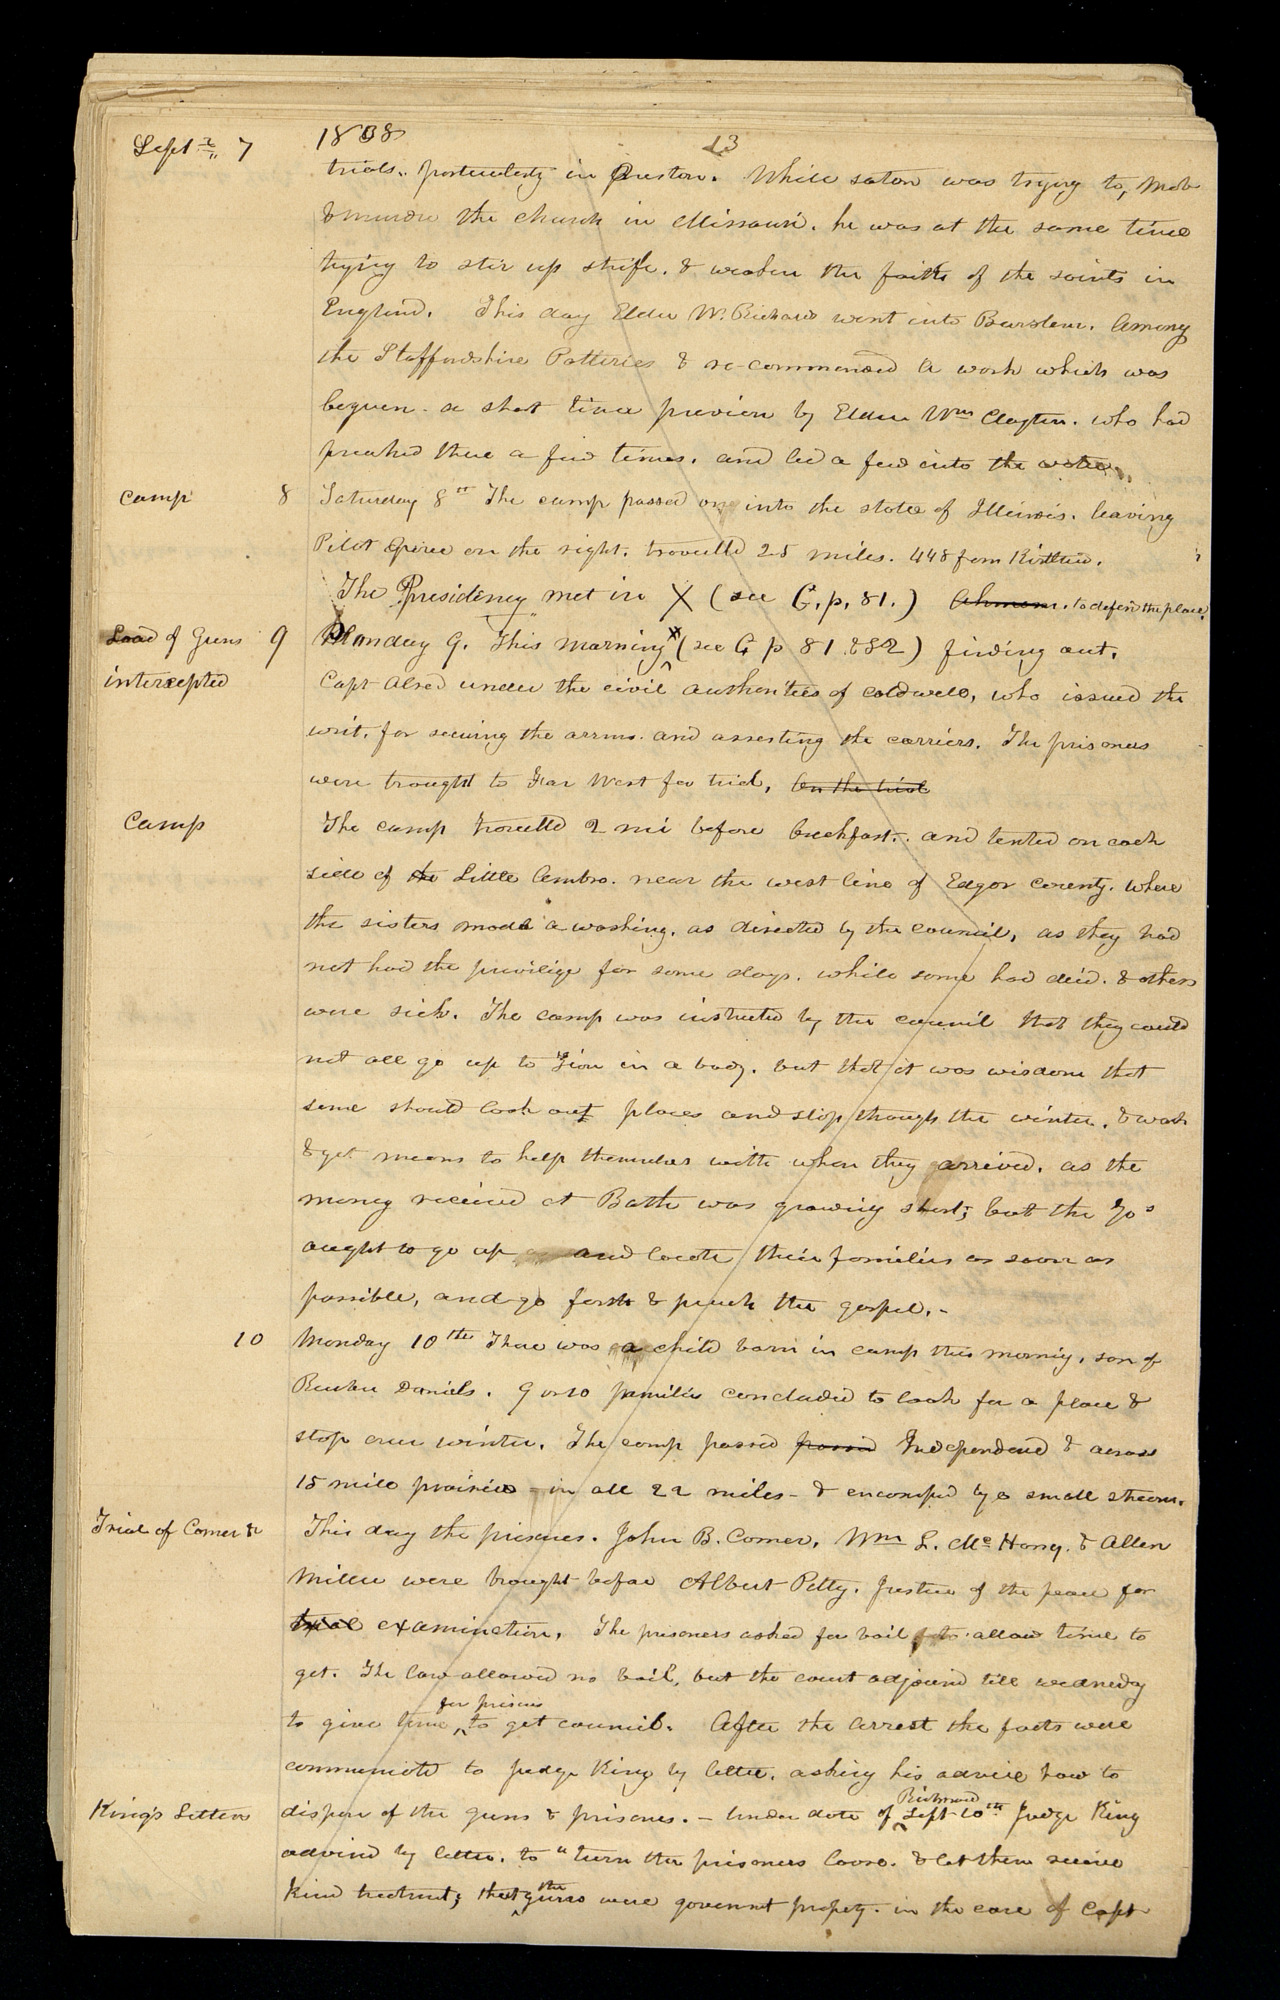 Sept. 7 1838 13
trials. particularly in Preston. While satan was trying to, mob
& murder the church in Missouri. he was at the same time
trying to stir up strife. & weaken the faith of the saints in
England. This day Elder W. Richards went into Burslem. among
the Staffordshire Potteries & re-commenced a work which was
begun. a short time previou by Elder Wm Clayton. who had
preached there a few times. and led a few into the water.
camp 8 Saturday 8th The camp passed on into the state of Illinois. leaving
Pilot Grove on the right. travelled 25 miles. 448 from Kirtland.
The Presidency met in X (see C. p. 81.) Ahman. to defend the place.
Load of Guns 9 Monday 9. This morning * (see C p 81 & 82) finding out.
intercepted Capt Alred under the civil authorities of Caldwell, who issued the
writ. for securing the arms. and arresting the carriers. The prisoners
were brought to Far West for trial, on the trial
camp The camp travelled 2 mi before breakfast. and tented on each
side of the Little Ambro. near the west line of Edgar County. where
the sisters made a washing. as directed by the council, as they had
not had the privilige for some days. while some had died. & others
were sick. The camp was instructed by the council that they could
not all go up to Zion in a body. but that it was wisdom that
some should look out places and stop through the winter. & work
& get means to help themselves with when they arrived. as the
money received at Bath was growing short; but the 70s
ought to go up and locate their families as soon as
possible, and go forth & preach the gospel.-
10 Monday 10th There was a child born in camp this morning. son of
Reuben Daniels. 9 or 10 families concluded to look for a place &
stop over winter. The camp passed passed Independence & across
15 mile prairie - in all 22 miles - & encamped by a small stream.
Trial of Comer &c This day the prisoners. John B. Comer, Wm L. McHoney. & Allen
Miller were brought before Albert Petty. Justice of the peace for
trial examination. The prisoners asked for bail to allow time to
get. The law allowed no bail, but the court adjourned till wednesday
for prisoners
to give time to get council. After the arrest the facts were
communicated to judge King by letter. asking his advice how to
Richmond
King's Letter dispose of the guns & prisoners. - Under date of Sept 10th Judge King
advised by letter. to "turn the prisoners loose. & let them receive
the
kind treatment; that guns were government property. in the care of Capt